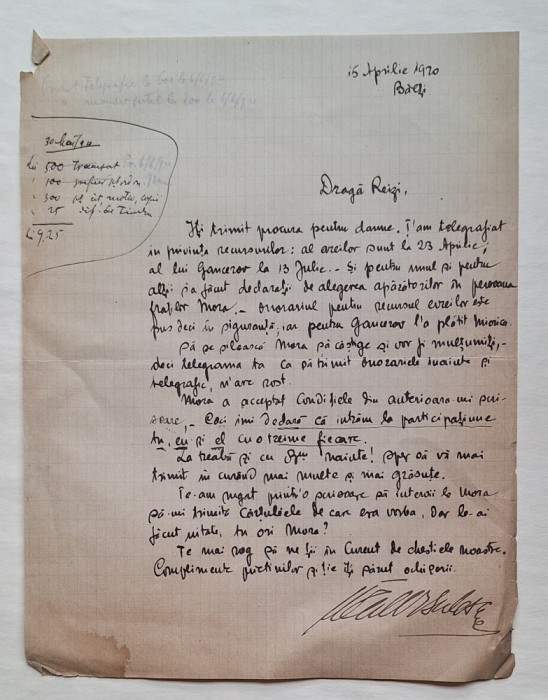 15 Aprilie 1920
Bălți
30 Mai/920
Lei 500 transport
" 100
" 300
" 25 dif. de timbru
Lei 925
Dragă Reizi,
Iți trimit procura pentru danne. T'am telegrafiat
în privința recursurilor: al evreilor sunt la 23 Aprilie,
al lui Gancerov la 13 Julie. – Și pentru unul și pentru
alții s'a făcut declarații de alegerea apărătorilor în persoana
fraților Mora. – Onorariul pentru recursul evreilor este
pus deci în siguranță, iar pentru Gancerov l'a plătit
Să se silească Mora să câștige și vor fi mulțumiți, –
deci telegrama ta ca să trimit onorariele înainte și
telegrafic, n'are rost.
Mora a acceptat condițiele din anterioara-mi scri-
soare, – căci îmi declară că intrăm la participațiune
tu, eu și el cu o treime fiecare.
La treabă și cu 'nainte! Sper să vă mai
trimit în curând mai multe și mai grăsuțe.
Te-am rugat printr'o scrisoare să intervii la Mora
să-mi trimită de care era vorba. Dar le-ai
făcut uitate, tu ori Mora?
Te mai rog să ne ții în curent de chestiele noastre.
Complimente prietinilor și ție îți sărut ochișorii.